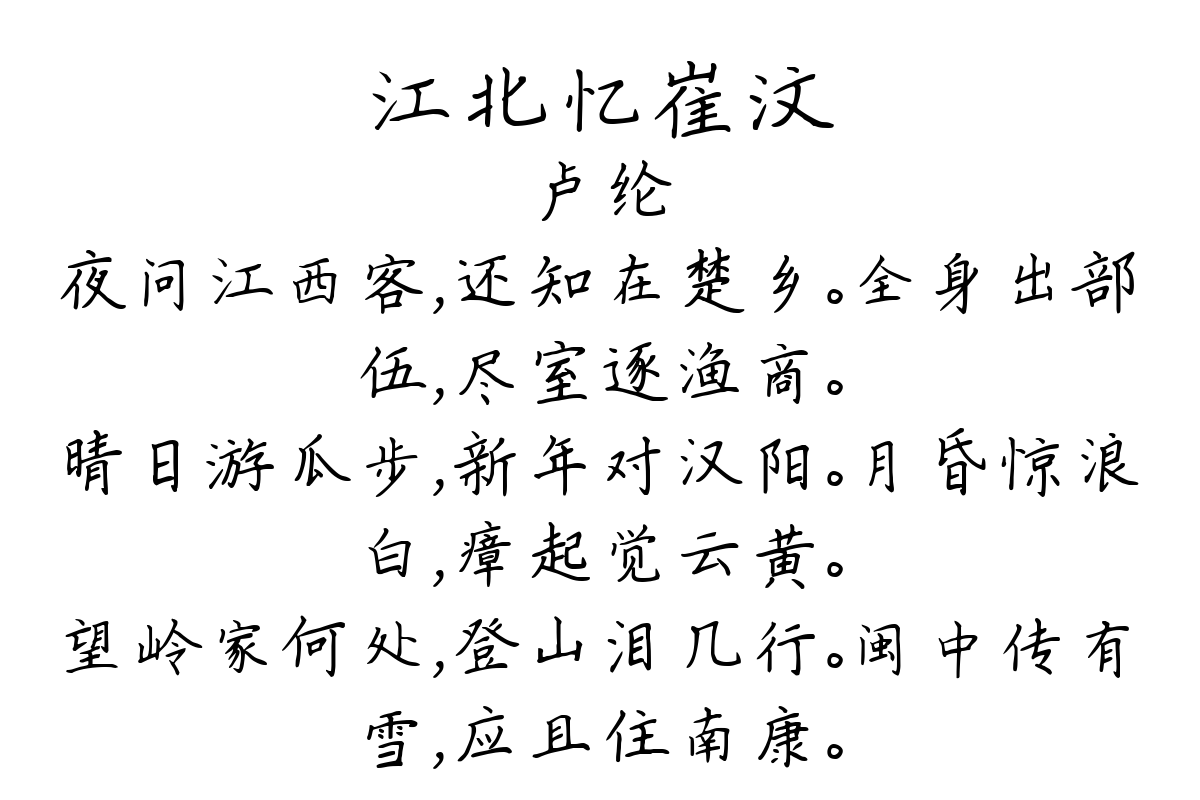 江北忆崔汶
卢纶
夜问江西客,还知在楚乡。全身出部
伍,尽室逐渔商。
晴日游瓜步,新年对汉阳。月昏惊浪
白,瘴起觉云黄。
望岭家何处,登山泪几行。闽中传有
雪,应且住南康。